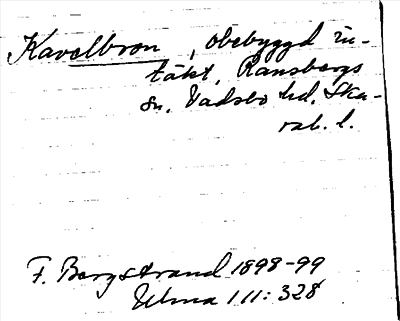 Kavelbron, obebyggd in-
täkt, Ransbergs
sn, Vadsbo hd, Ska-
rab. l.
F. Bergstrand 1898-99
Ulma 111:328